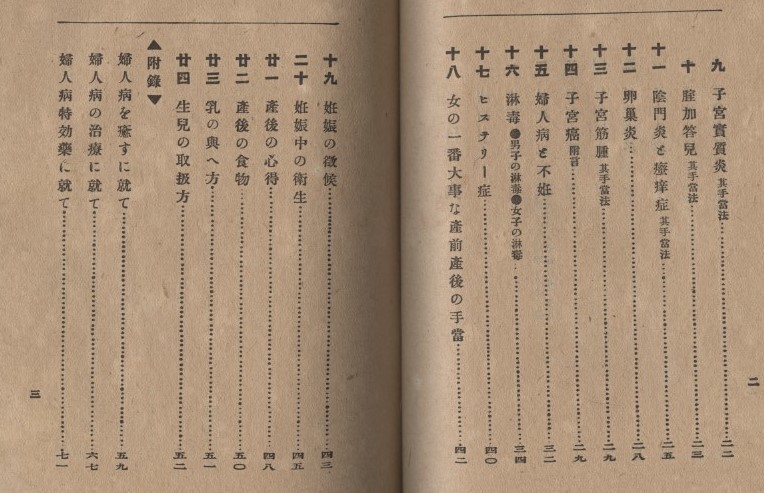 九 子宮實質炎 其手當法……二二
十 腟加答兒 其手當法……二三
十一 陰門炎と瘙痒症 其手當法……二五
十二 卵巢炎……二八
十三 子宮筋腫 其手當法……二九
十四 子宮癌 附言……二九
十五 婦人病と不妊……三二
十六 淋毒●男子の淋毒●女子の淋毒……三四
十七 ヒステリー症……四〇
十八 女の一番大事な產前產後の手當……四二
二
十九 妊娠の徵候……四三
二十 妊娠中の衛生……四五
廿一 產後の心得……四八
廿二 產後の食物……五〇
廿三 乳の與へ方……五一
廿四 生兒の取扱方……五二
▲附錄▼
婦人病を癒すに就て……五九
婦人病の治療に就て……六七
婦人病特効藥に就て……七一
三